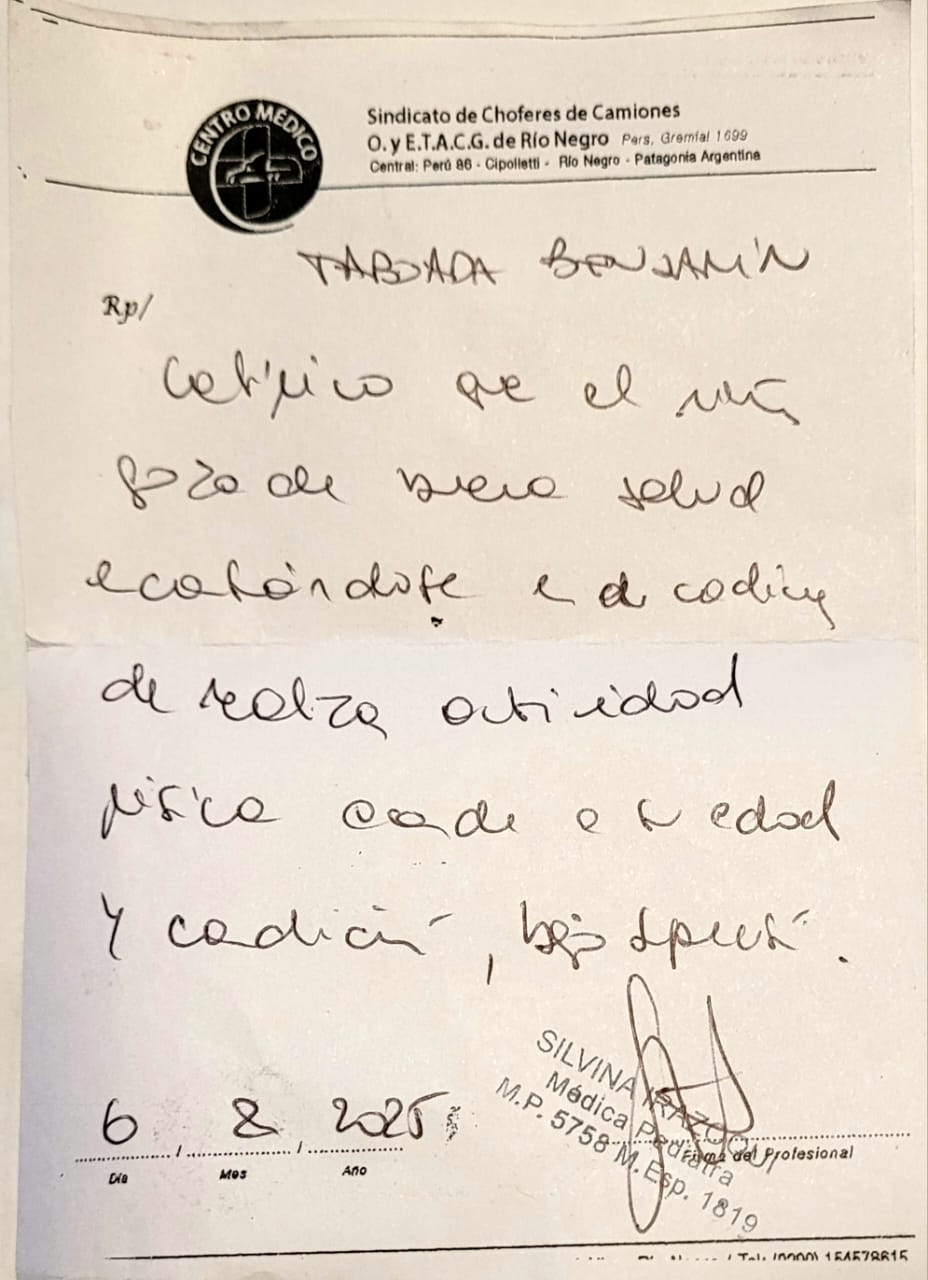 CENTRO MÉDICO
Sindicato de Choferes de Camiones
O. y E.T.A.C.G. de Río Negro Pers. Gremial 1699
Central: Perú 86 - Cipolletti - Río Negro - Patagonia Argentina
TABOADA BENJAMÍN
Rp/
Certifico que el niño
goza de buena salud
encontrándose en condición
de realizar actividad
física acorde a su edad
y condición, bajo supervisión.
6 / 8 / 2025
Día Mes Año
SILVINA IRAZOQUI
Médica Pediatra
M.P. 5758 M.Esp. 1819
Firma del Profesional
154578615